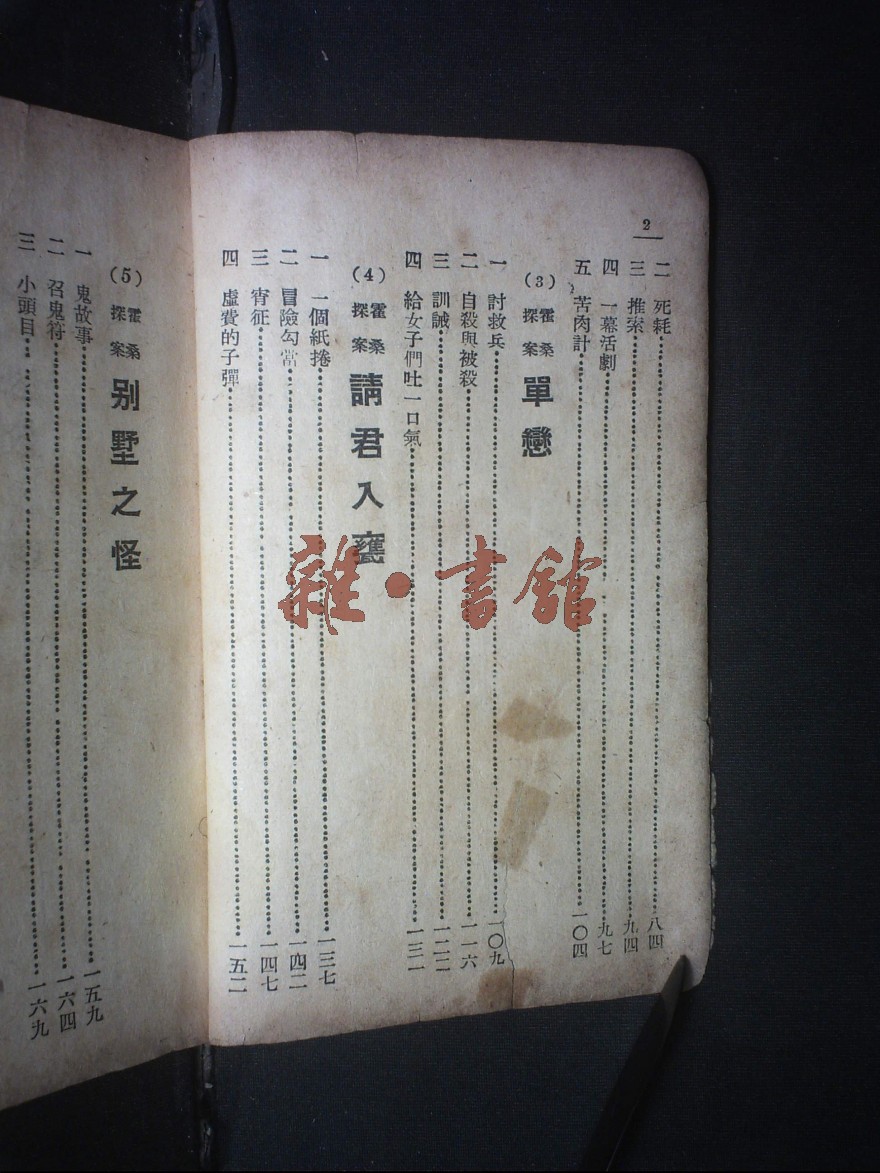 2
二 死耗 八四
三 推索 九四
四 一幕活劇 九七
五 苦肉計 一〇四
(3) 霍桑探案 單戀
一 討救兵 一〇九
二 自殺與被殺 一一六
三 訓誡 一二二
四 給女子們吐一口氣 一三一
(4) 霍桑探案 請君入甕
一 一個紙捲 一三七
二 冒險勾當 一四二
三 宵征 一四七
四 虛費的子彈 一五二
(5) 霍桑探案 別墅之怪
一 鬼故事 一五九
二 召鬼符 一六四
三 小頭目 一六九
雜·書館